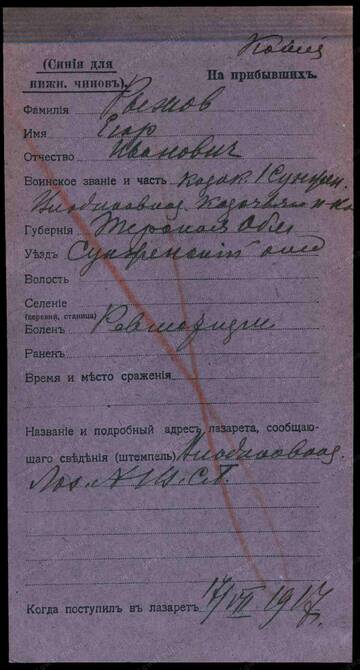 Копия
(Синія для нижн. чиновъ).
На прибывшихъ.
Фамилія Рыжов
Имя Егор
Отчество Иванович
Воинское званіе и часть казак 1 Сунжен.
Владикавказ. Казачьяго п-ка
Губернія Терская Обл
Уѣздъ Сунженскій
Волость
Селеніе
(деревня, станица)
Боленъ Ревматизм
Раненъ
Время и мѣсто сраженія
Названіе и подробный адресъ лазарета, сообщаю-
щаго свѣдѣнія (штемпель) Владикавказ.
Лаз. №
Когда поступил въ лазаретъ 17/VII 1917